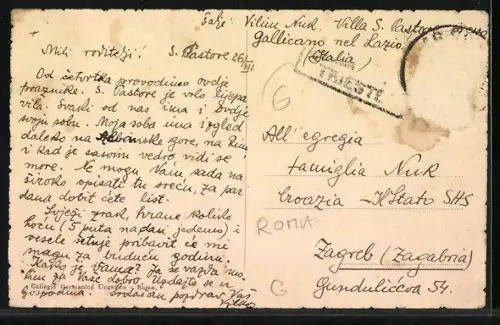 Šalje: Vilim Nuk. Villa S. Pastore presso
Gallicano nel Lazio
(Italia)
Mili roditelji! S. Pastore 26/VII
Od četvrtka provodimo ovdje
praznike. S. Pastore je vrlo lijepa
vila. Svaki od nas ima i ovdje
svoju sobu. Moja soba ima izgled
daleko na Albanske gore, na Rim
i kad je sasvim vedro, vidi se
more. Ne mogu Vam sada na
široko opisati tu sreću, za par
dana dobit ćete list.
Svježi zrak, hrane koliko
hoću (5 puta na dan jedemo) i
vesele šetnje pribavit će mi
snagu za buduću godinu.
Kako je Vama? Ja se vazda mo
lim za Vaše dobro. Uzdajte se u
Gospodina. Srdačan pozdrav Vaš
Collegio Germanico Ungarico - Roma.
TRIESTE
6
All'egregia
famiglia Nuk
Croazia - Stato SHS
ROMA
Zagreb (Zagabria)
Gundulićeva 54.
G